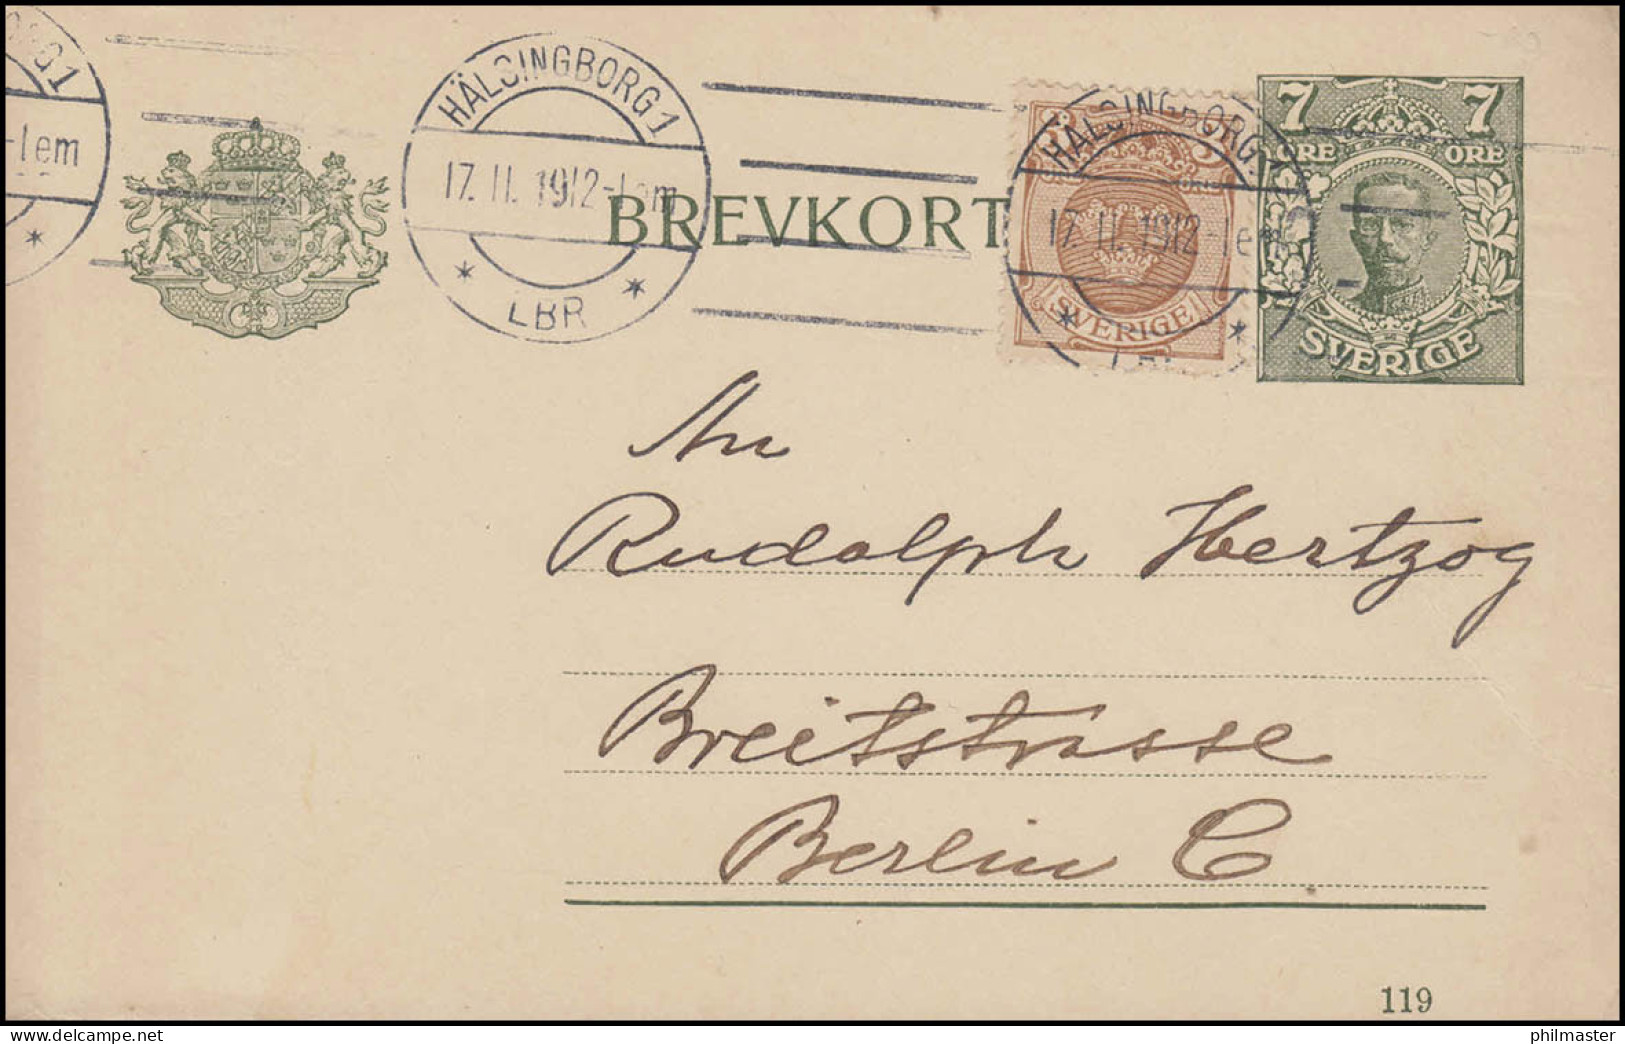 HÄLSINGBORG 1
17.11.1912-1em
LBR
-1em
BREVKORT
HÄLSINGBORG 1
17.11.1912-1em
3 3
SVERIGE
7 7
ÖRE ÖRE
SVERIGE
An
Rudolph Hertzog
Breitstrasse
Berlin C
119
philmaster